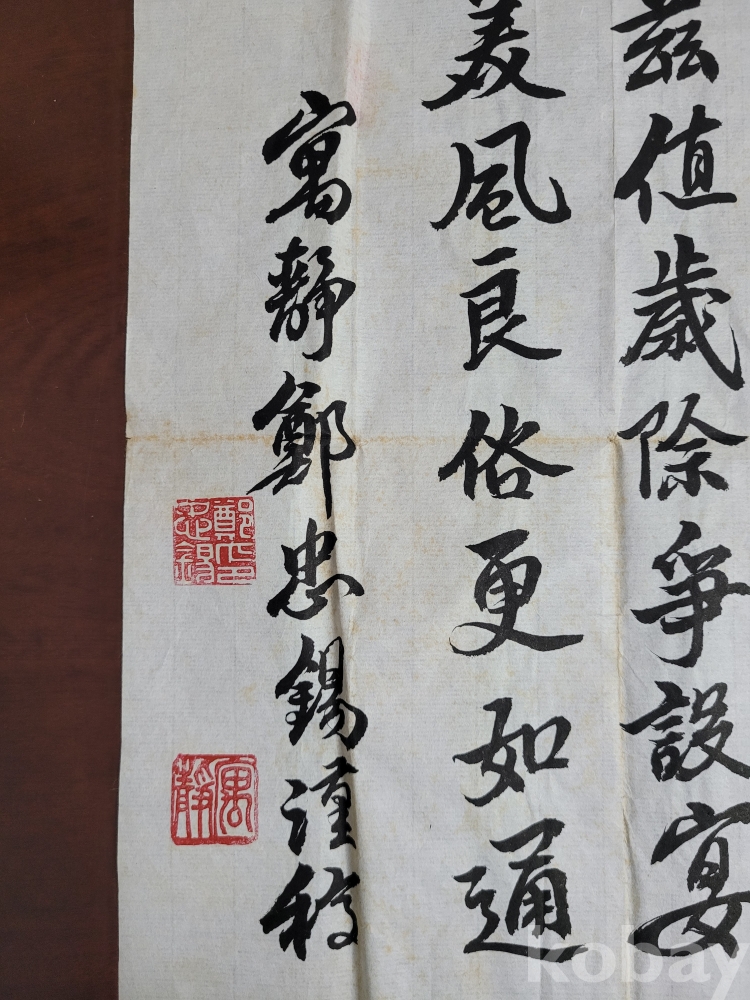 茲值歲除爭設宴
美風良俗更如通
寓靜鄭忠錫謹稿
鄭印忠錫
寓靜
kobay